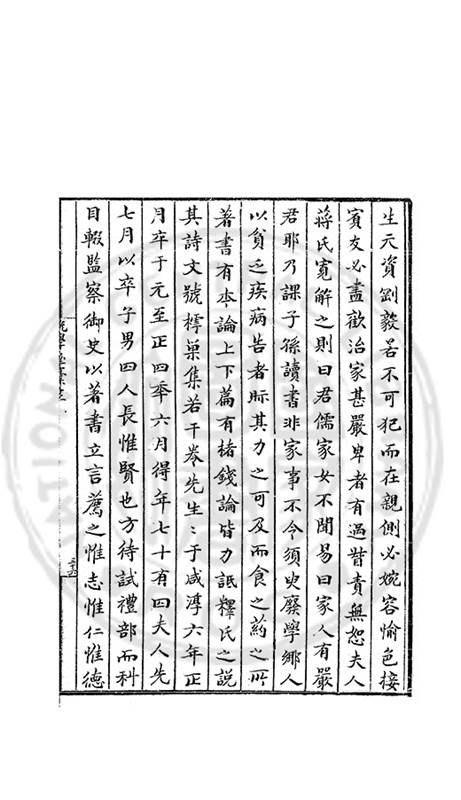 生天資剛毅若不可犯而在親側必婉容愉色接
賓友必盡歡治家甚嚴卑者有過督責無恕夫人
蔣氏寬解之則曰君儒家女不聞易曰家人有嚴
君耶乃課子孫讀書非家事不令須臾廢學鄉人
以貧乏疾病告者眎其力之可及而食之葯之所
著書有本論上下篇有楮錢論皆力詆釋氏之說
其詩文號樗巢集若干卷先生生于咸淳六年正
月卒于元至正四年六月得年七十有四夫人先
七月以卒子男四人長惟賢也方待試禮部而科
目輟監察御史以著書立言薦之惟志惟仁惟德